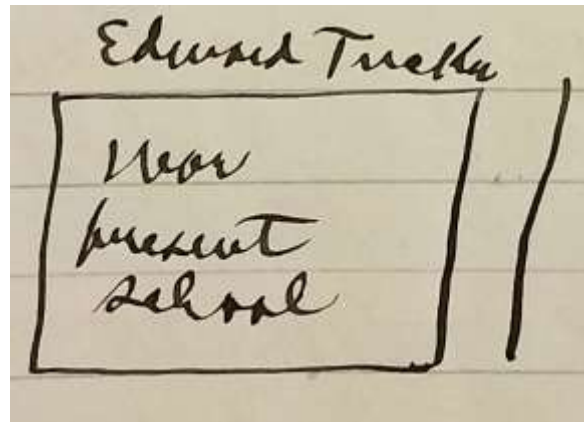 Edward Tucker
Near
present
school